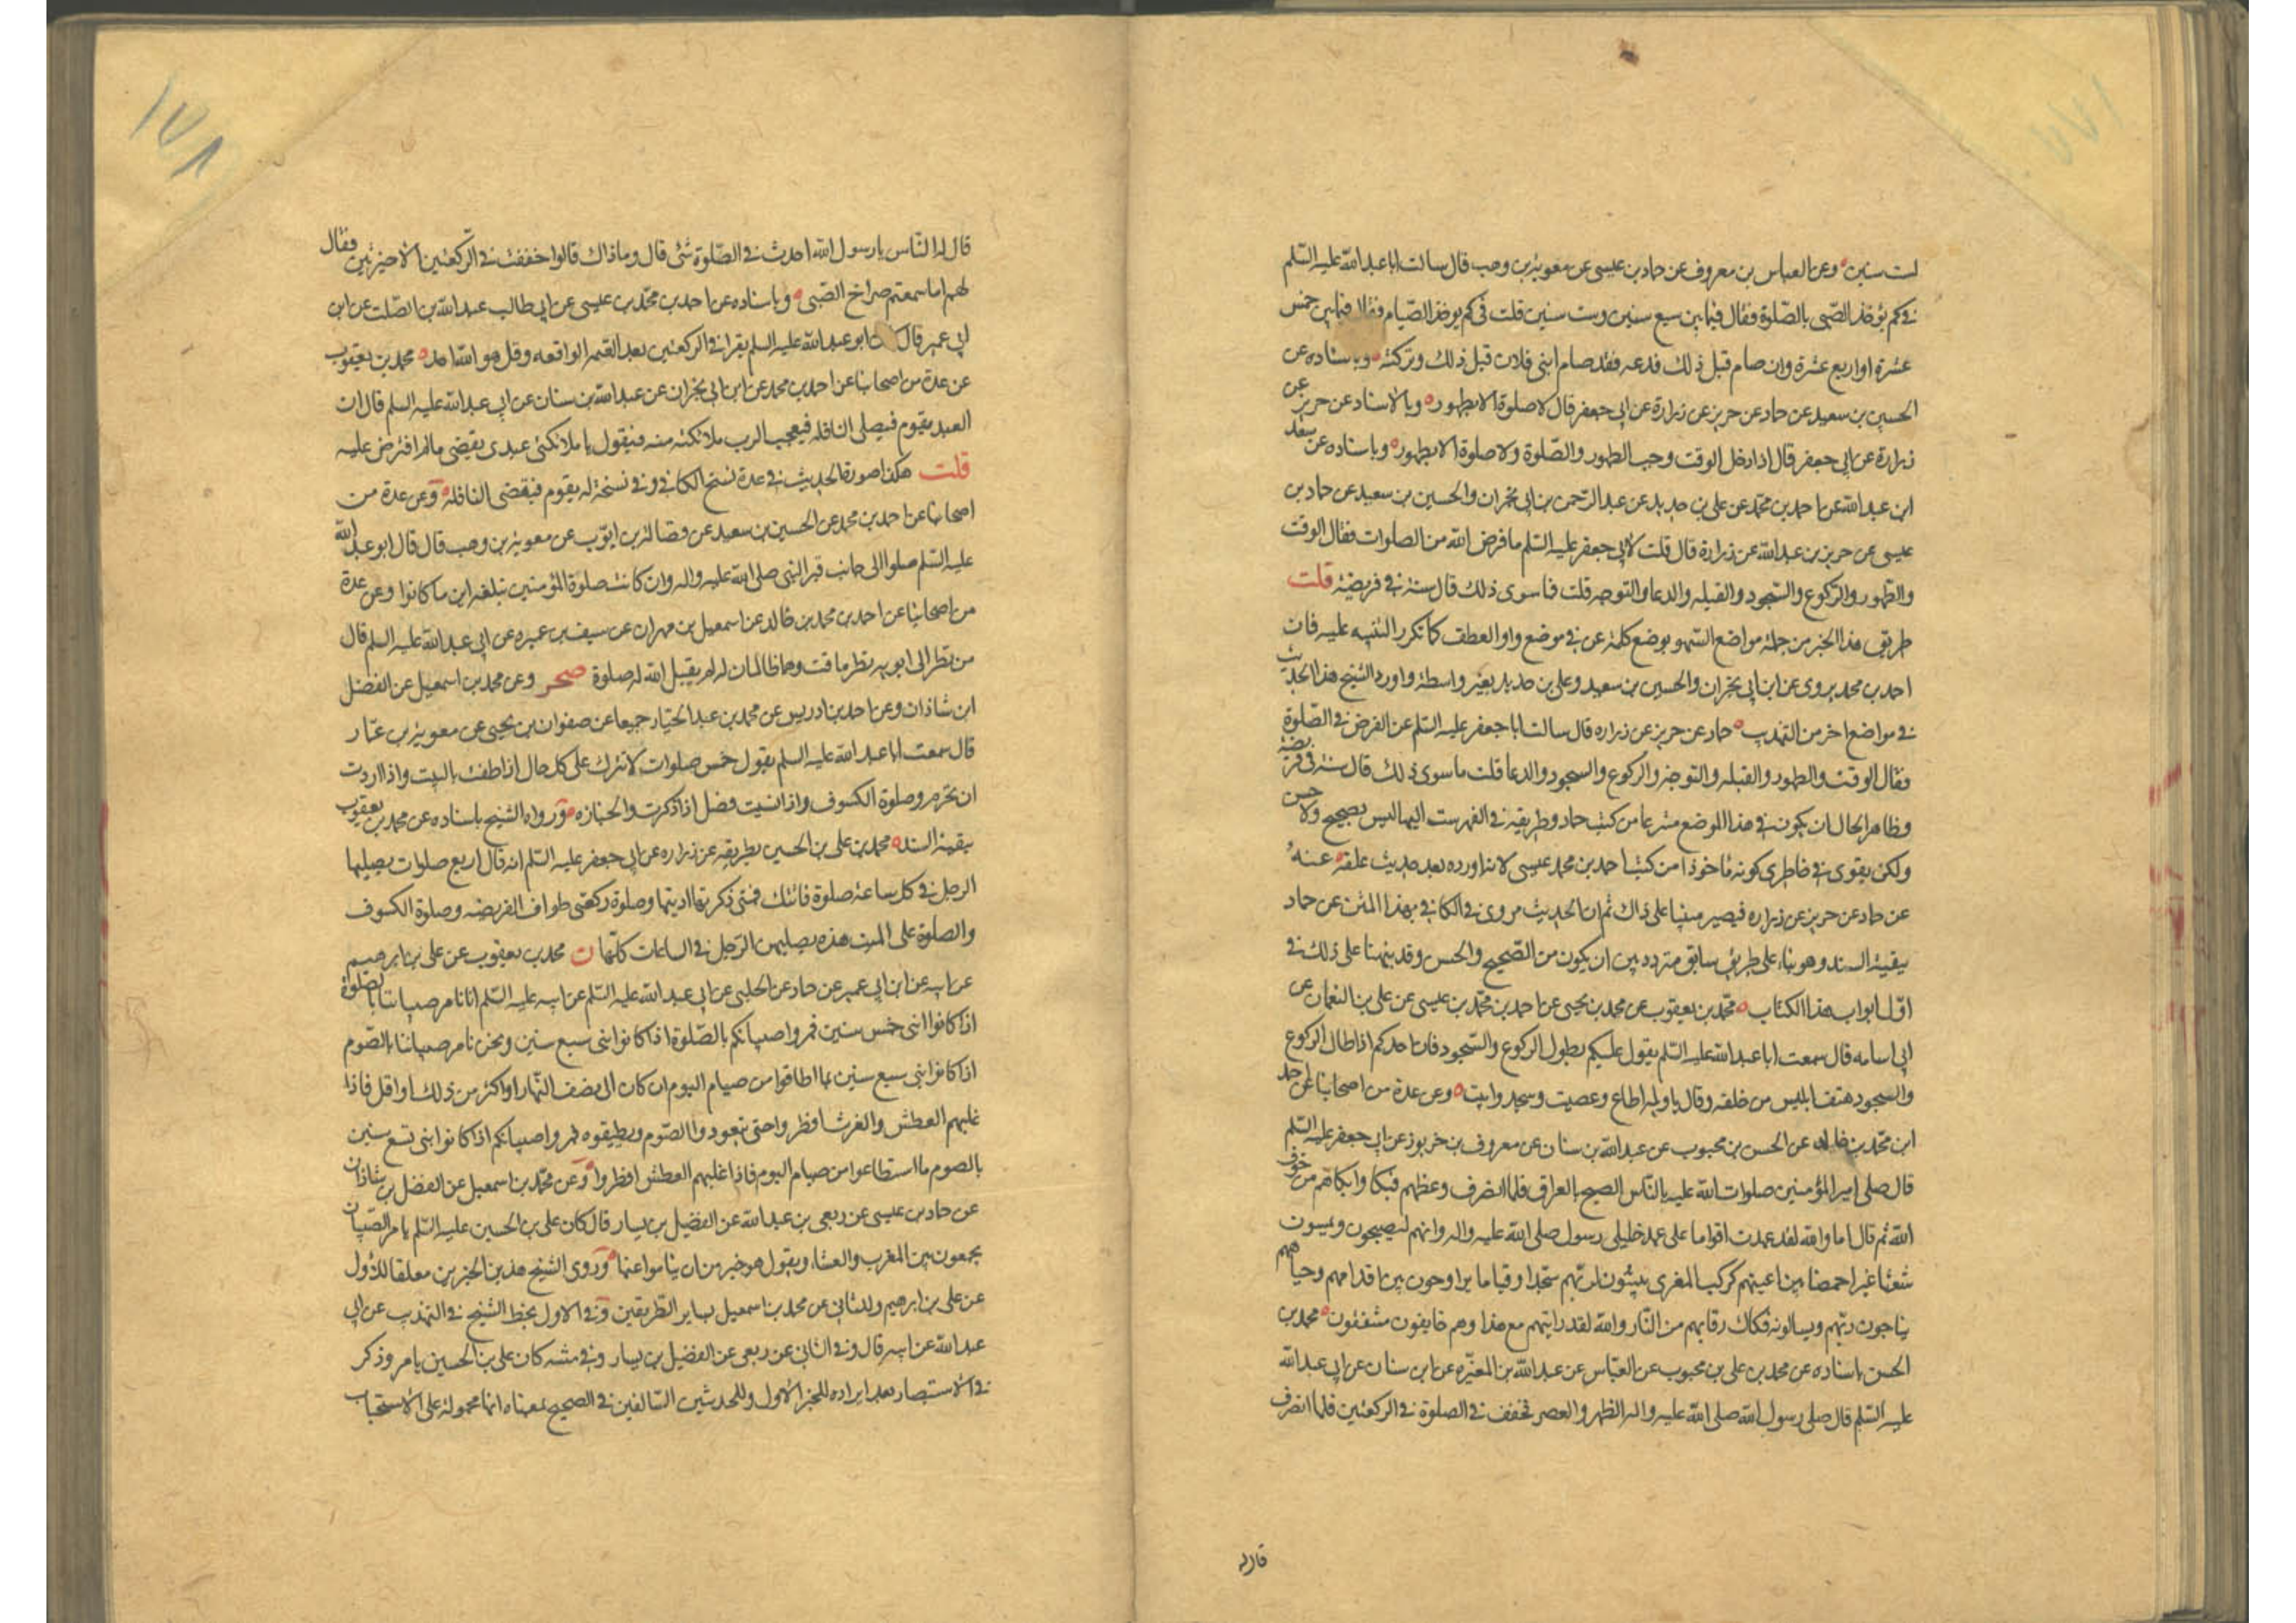 لست سنين وعن العباس بن معروف عن حماد بن عيسى عن معوية بن وهب قال سالت ابا عبد الله عليه السلم
في كم يؤخذ الصبى بالصلوة فقال فيما بين سبع سنين وست سنين قلت في كم يوخذ الصيام فقال فيما بين خمس
عشرة او اربع عشرة وان صام قبل ذلك فدعه فقد صام ابنى فلان قبل ذلك وتركته وباسناده عن
الحسين بن سعيد عن حماد عن حريز عن زرارة عن ابى جعفر قال لا صلوة الا بطهور وبالاسناد عن حريز عن
زرارة عن ابى جعفر قال اذا دخل الوقت وجب الطهور والصلوة ولا صلوة الا بطهور وباسناده عن سعد
ابن عبد الله عن احمد بن محمد عن على بن حديد عن عبد الرحمن بن ابى نجران والحسين بن سعيد عن حماد بن
عيسى عن حريز بن عبد الله عن زرارة قال قلت لابى جعفر عليه السلم ما فرض الله من الصلوات فقال الوقت
والطهور والركوع والسجود والقبله والدعا والتوجه قلت فما سوى ذلك قال سنة في فريضة قلت
طريق هذا الخبر من جملة مواضع السهو بوضع كلمة عن في موضع واو العطف كما تكرر التنبيه عليه فان
احمد بن محمد يروى عن ابن ابى نجران والحسين بن سعيد وعلى بن حديد بغير واسطة واورد الشيخ هذا الحديث
في مواضع اخر من التهذيب حماد عن حريز عن زراره قال سالت ابا جعفر عليه السلم عن الفرض في الصلوة
فقال الوقت والطهور والقبله والتوجه والركوع والسجود والدعا قلت ما سوى ذلك قال سنة في فريضة
وظاهر الحال ان يكون في هذا الموضع منتزعا من كتب حماد وطريقه في الفهرست اليها ليس بصحيح ولا حسن
ولكن يقوى في خاطرى كونه ماخوذا من كتب احمد بن محمد عيسى لانه اورده بعد حديث علقه عنه
عن حماد عن حريز عن زراره فيصير مبنيا على ذاك ثم ان الحديث مروى في الكافى بهذا المتن عن حماد
ببقية السند وهو بناء على طريق سابق متردد بين ان يكون من الصحيح والحسن وقد نبهنا على ذلك في
اول ابواب هذا الكتاب محمد بن يعقوب عن محمد بن يحيى عن احمد بن محمد بن عيسى عن على بن النعمان عن
ابى اسامه قال سمعت ابا عبد الله عليه السلم يقول عليكم بطول الركوع والسجود فان احدكم اذا طال الركوع
والسجود هتف ابليس من خلفه وقال يا ويله اطاع وعصيت وسجد وابيت وعن عدة من اصحابنا عن احمد
ابن محمد بن خالد عن الحسن بن محبوب عن عبد الله بن سنان عن معروف بن خربوذ عن ابى جعفر عليه السلم
قال صلى امير المؤمنين صلوات الله عليه بالناس الصبح بالعراق فلما انصرف وعظهم فبكا وابكاهم من خوف
الله ثم قال اما والله لقد عهدت اقواما على عهد خليلى رسول صلى الله عليه واله وانهم ليصبحون ويمسون
شعثا غبرا خمصا بين اعينهم كركب المعزى يبيتون لربهم سجدا وقياما يراوحون بين اقدامهم وجباههم
يناجون ربهم ويسالونه فكاك رقابهم من النار والله لقد رايتهم مع هذا وهم خايفون مشفقون محمد بن
الحسن باسناده عن محمد بن على بن محبوب عن العباس عن عبد الله بن المغيرة عن ابن سنان عن ابى عبد الله
عليه السلم قال صلى رسول الله صلى الله عليه واله الظهر والعصر فخفف في الصلوة في الركعتين فلما انصرف
قال له
قال له الناس يا رسول الله احدث في الصلوة شئ قال وما ذاك قالوا خففت في الركعتين الاخيرتين فقال
لهم اما سمعتم صراخ الصبى وباسناده عن احمد بن محمد بن عيسى عن ابى طالب عبد الله بن الصلت عن ابن
ابى عمير قال كان ابو عبد الله عليه السلم يقرا في الركعتين بعد العتمه الواقعه وقل هو الله احد محمد بن يعقوب
عن عدة من اصحابنا عن احمد بن محمد عن ابن ابى نجران عن عبد الله بن سنان عن ابى عبد الله عليه السلم قال ان
العبد يقوم فيصلى النافله فيعجب الرب ملائكته منه فيقول يا ملائكتى عبدى يقضى ما لم افترض عليه
قلت هكذا صورة الحديث في عدة نسخ للكافى وفي نسخة له يقوم فيقضى النافله وعن عدة من
اصحابنا عن احمد بن محمد عن الحسين بن سعيد عن فضالة بن ايوب عن معوية بن وهب قال قال ابو عبد الله
عليه السلم صلوا الى جانب قبر النبى صلى الله عليه واله وان كانت صلوة المؤمنين تبلغه اين ما كانوا وعن عدة
من اصحابنا عن احمد بن محمد بن خالد عن اسمعيل بن مهران عن سيف بن عميره عن ابى عبد الله عليه السلم قال
من نظر الى ابويه نظر ماقت وهما ظالمان له لم يقبل الله له صلوة صحر وعن محمد بن اسمعيل عن الفضل
ابن شاذان وعن احمد بن ادريس عن محمد بن عبد الجبار جميعا عن صفوان بن يحيى عن معوية بن عمار
قال سمعت ابا عبد الله عليه السلم يقول خمس صلوات لا تترك على كل حال اذا طفت بالبيت واذا اردت
ان تحرم وصلوة الكسوف واذا نسيت فصل اذا ذكرت والجنازه ورواه الشيخ باسناده عن محمد بن يعقوب
ببقية السند محمد بن على بن الحسين بطريقه عن زراره عن ابى جعفر عليه السلم انه قال اربع صلوات يصليها
الرجل في كل ساعة صلوة فاتتك فمتى ذكرتها اديتها وصلوة ركعتى طواف الفريضه وصلوة الكسوف
والصلوة على الميت هذه يصليهن الرجل في الساعات كلها ن محمد بن يعقوب عن على بن ابرهيم
عن ابيه عن ابن ابى عمير عن حماد عن الحلبى عن ابى عبد الله عليه السلم عن ابيه عليه السلم انا نامر صبياننا بالصلوة
اذا كانوا ابنى خمس سنين فمروا صبيانكم بالصلوة اذا كانوا بنى سبع سنين ونحن نامر صبياننا بالصوم
اذا كانوا بنى سبع سنين بما اطاقوا من صيام اليوم ان كان الى نصف النهار او اكثر من ذلك او اقل فاذا
غلبهم العطش والغرث افطروا حتى يتعودوا الصوم ويطيقوه فمروا صبيانكم اذا كانوا بنى تسع سنين
بالصوم ما استطاعوا من صيام اليوم فاذا غلبهم العطش افطروا وعن محمد بن اسمعيل عن الفضل بن شاذان
عن حماد بن عيسى عن ربعى بن عبد الله عن الفضيل بن يسار قال كان على بن الحسين عليه السلم يامر الصبيان
يجمعون بين المغرب والعشاء ويقول هو خير من ان يناموا عنها وروى الشيخ هذين الخبرين معلقا للاول
عن على بن ابرهيم وللثانى عن محمد بن اسمعيل بساير الطريقين وفي الاول بخط الشيخ في التهذيب عن ابى
عبد الله عن ابيه قال وفي الثانى عن ربعى عن الفضيل بن يسار وفي متنه كان على بن الحسين يامر وذكر
في الاستبصار بعد ايراده للخبر الاول وللحديثين السالفين في الصحيح بمعناه انها محمولة على الاستحباب